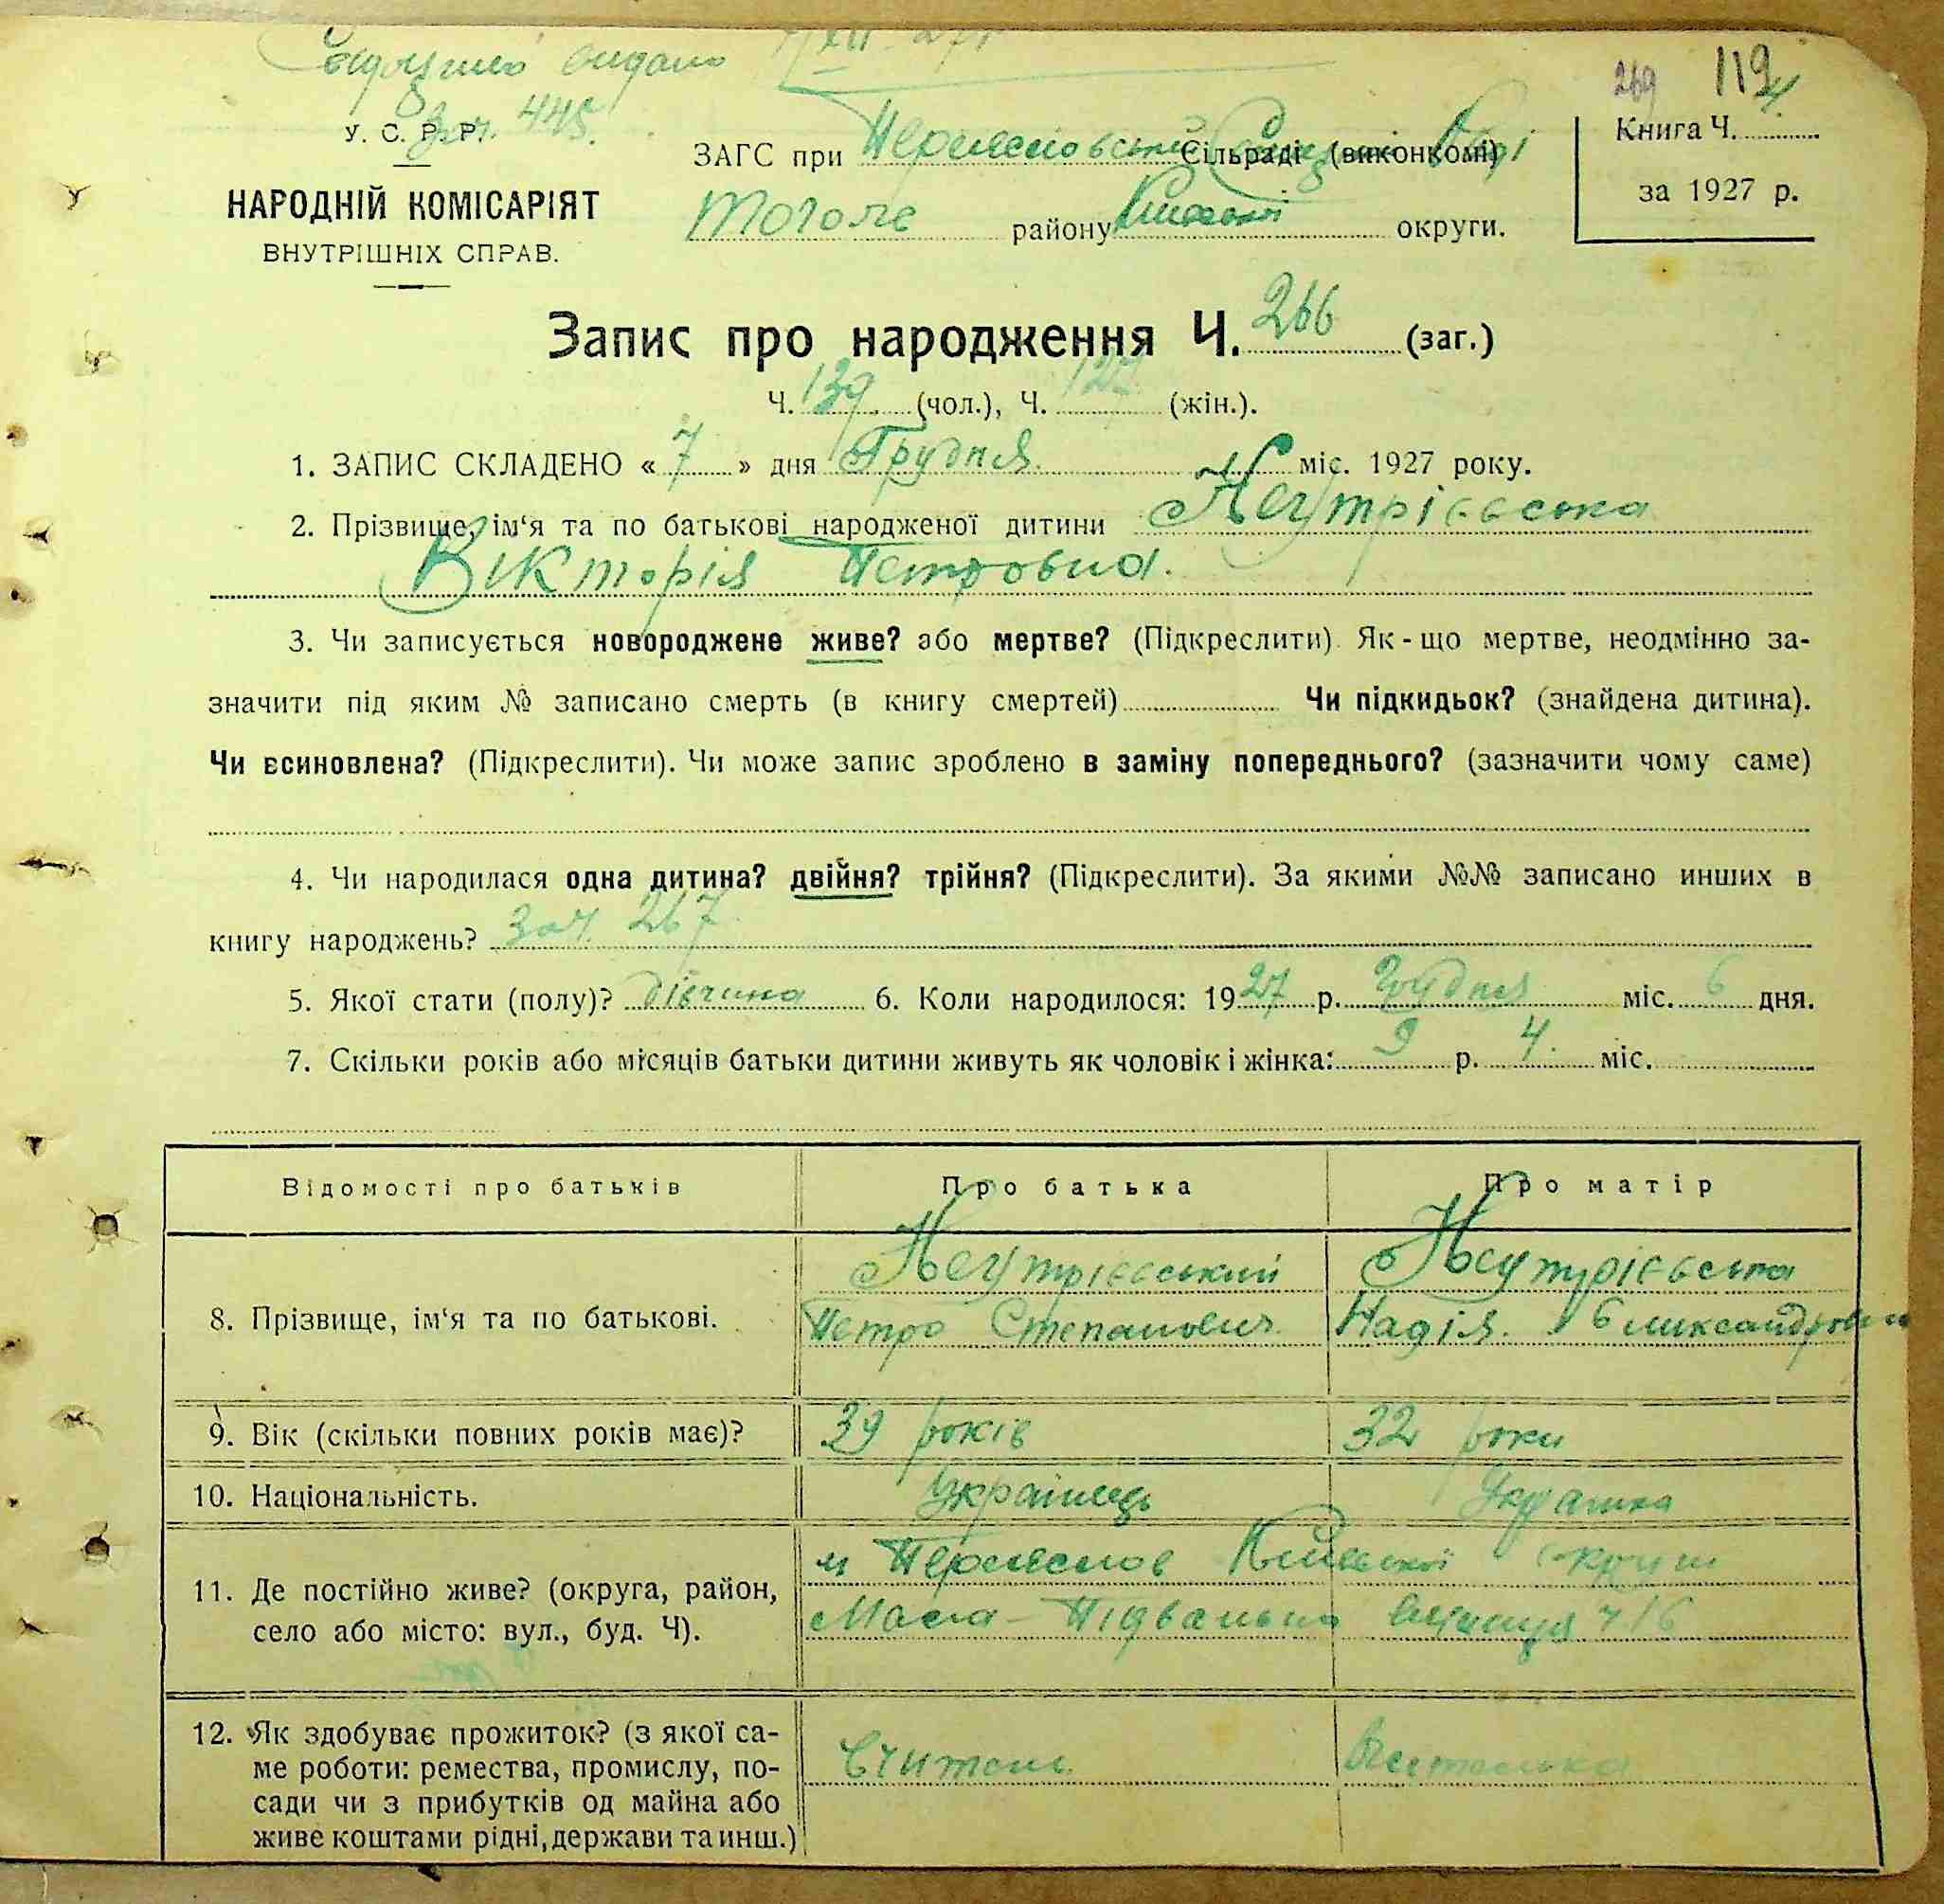 видано 7/XII 27 р
За ч. 445.
269 119
У. С. Р. Р.
НАРОДНІЙ КОМІСАРІЯТ
ВНУТРІШНІХ СПРАВ.
ЗАГС при Сільраді (виконкомі)
того ж району Київської округи.
Книга Ч.
за 1927 р.
Запис про народження Ч. 266 (заг.)
Ч. 139 (чол.), Ч. 127 (жін.).
1. ЗАПИС СКЛАДЕНО « 7 » дня Грудня міс. 1927 року.
2. Прізвище, ім‘я та по батькові народженої дитини Неутрієвська
Вікторія Петровна.
3. Чи записується новороджене живе? або мертве? (Підкреслити). Як-що мертве, неодмінно за-
значити під яким № записано смерть (в книгу смертей) Чи підкидьок? (знайдена дитина).
Чи всиновлена? (Підкреслити). Чи може запис зроблено в заміну попереднього? (зазначити чому саме)
4. Чи народилася одна дитина? двійня? трійня? (Підкреслити). За якими №№ записано инших в
книгу народжень? За ч. 267
5. Якої стати (полу)? дівчина 6. Коли народилося: 1927 р. Грудня міс. 6 дня.
7. Скільки років або місяців батьки дитини живуть як чоловік і жінка: 9 р. 4. міс.
Відомості про батьків Про батька Про матір
8. Прізвище, ім‘я та по батькові. Неутрієвський Неутрієвська
Петро Степанович Надія
9. Вік (скільки повних років має)? 39 років 32 роки
10. Національність. Українець Українка
м Переяслов Київської округи
11. Де постійно живе? (округа, район,
село або місто: вул., буд. Ч). Мала-Підвальна вулиця ч 16
12. Як здобуває прожиток? (з якої са-
ме роботи: ремества, промислу, по- Вчитель Вчителька
сади чи з прибутків од майна або
живе коштами рідні, держави та инш.)